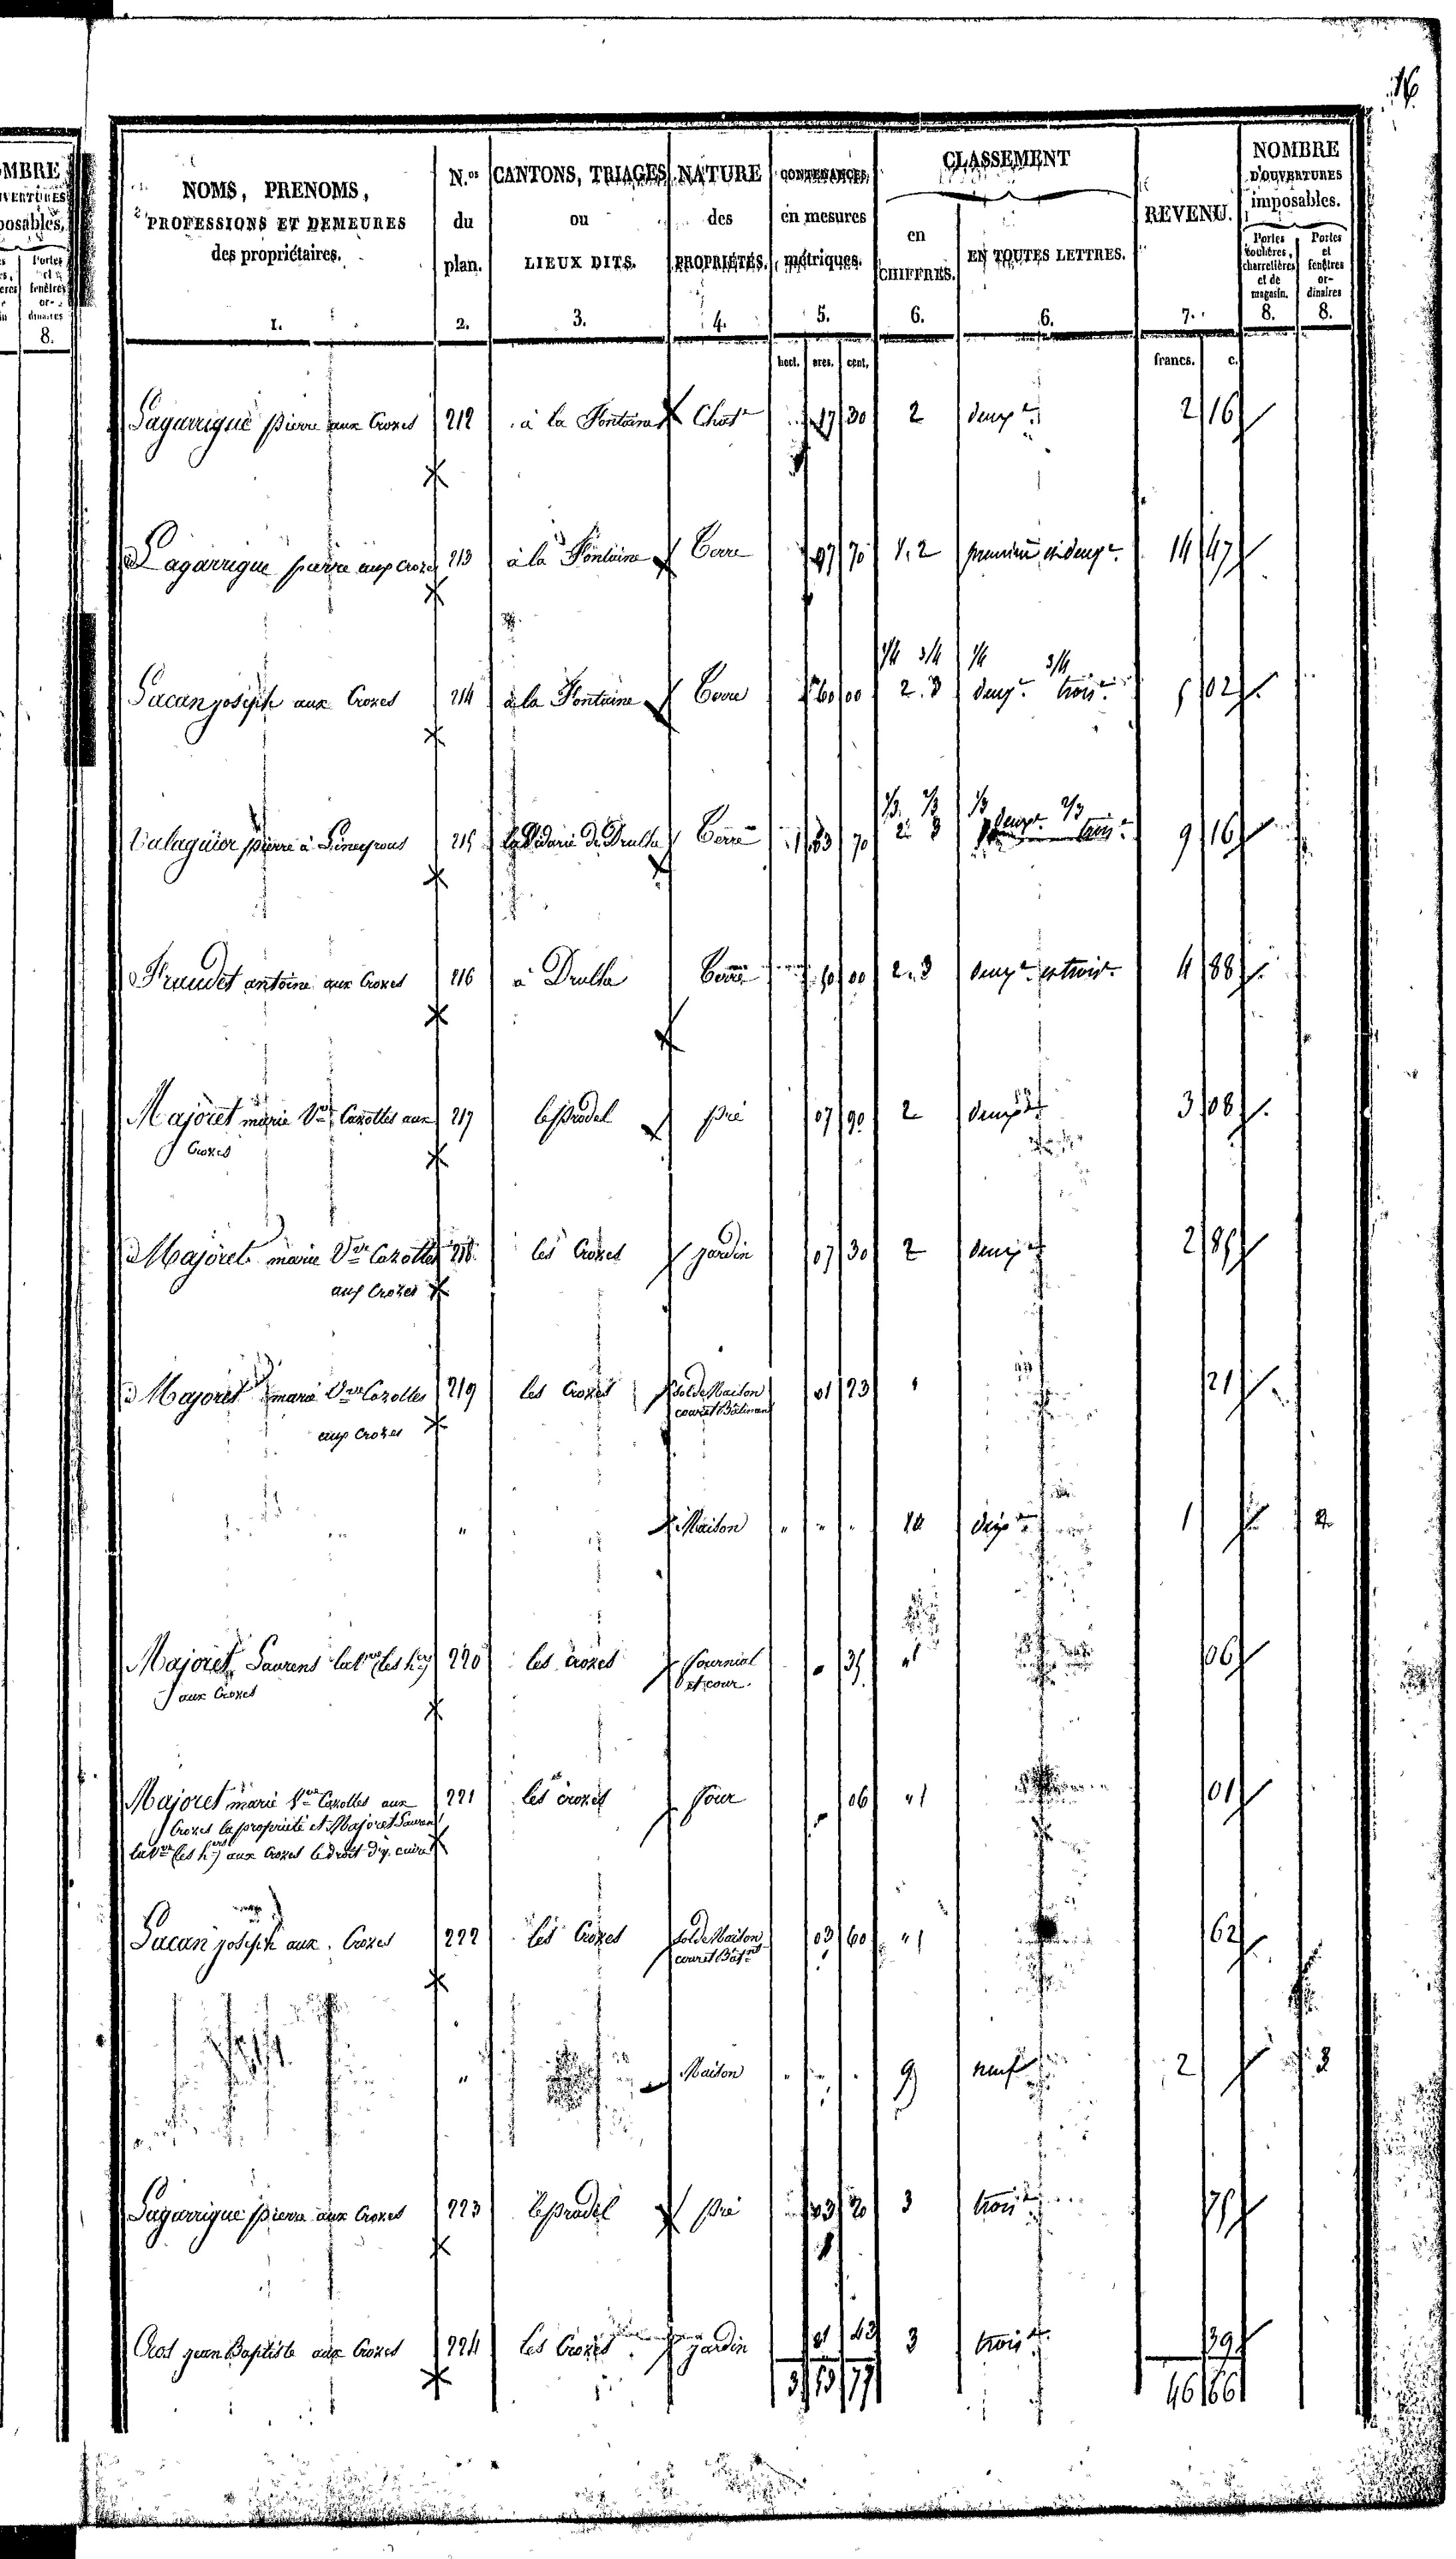 16
MBRE
posables.
Portes
et
fenêtres
or-
dinaires
8.
NOMS, PRENOMS,
PROFESSIONS ET DEMEURES
des propriétaires.
1.
N.os
du
plan.
2.
CANTONS, TRIAGES
ou
LIEUX DITS.
3.
NATURE
des
PROPRIÉTÉS.
4.
CONTENANCES,
en mesures
métriques.
5.
CLASSEMENT
en
CHIFFRES.
6.
EN TOUTES LETTRES.
6.
REVENU.
7.
NOMBRE
D'OUVERTURES
imposables.
Portes
cochères,
charretières
et de
magasin.
8.
Portes
et
fenêtres
or-
dinaires
8.
hect. ares. cent.
francs. c.
Lagarrigue pierre aux Crozes 212 à la Fontaine Chat 17 30 2 deux 2 16
Lagarrigue pierre aux Crozes 213 à la Fontaine Terre 97 70 1, 2 première et deux 14 47
1/4 3/4 1/4 3/4
Lacan joseph aux Crozes 214 à la Fontaine Terre 60 00 2. 3 deux trois 5 02
1/3 2/3 1/3 2/3
Valaguier pierre à 215 de Drulhe Terre 1 83 70 2. 3 deux trois 9 16
Fraudet antoine aux Crozes 216 à Drulhe Terre 50 00 2. 3 deux et trois 4 88
Majoret marie Vve Cazottes aux 217 le pradel pré 07 90 2 deux 3 08
Crozes
Majoret marie Vve Cazottes 218 les Crozes jardin 07 30 2 deux 2 85
aux Crozes
Majoret marie Vve Cazottes 219 les Crozes sol de Maison 01 23 " 21
aux Crozes cour et Bâtiment
" Maison " " " 10 dix 1 2
Majoret Laurens la Vve (les hers) 220 les crozes fournial 35 " 06
aux Crozes et cour
Majoret marie Vve Cazottes aux 221 les crozes four 06 " 01
Crozes la propriété et Majoret Laurens
la Vve (les hers) aux Crozes le droit d'y cuire
Lacan joseph aux Crozes 222 les Crozes sol de Maison 03 60 " 62
cour et Bâtnt
" Maison " " " 9 neuf 2 3
Lagarrigue pierre aux Crozes 223 le pradel pré 03 20 3 trois 75
Cros jean Baptiste aux Crozes 224 les Crozes jardin 01 43 3 trois 39
3 53 77 46 66